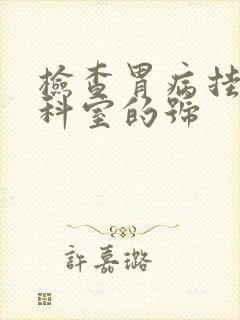 檢查胃病挂
科室的號
許嘉璐